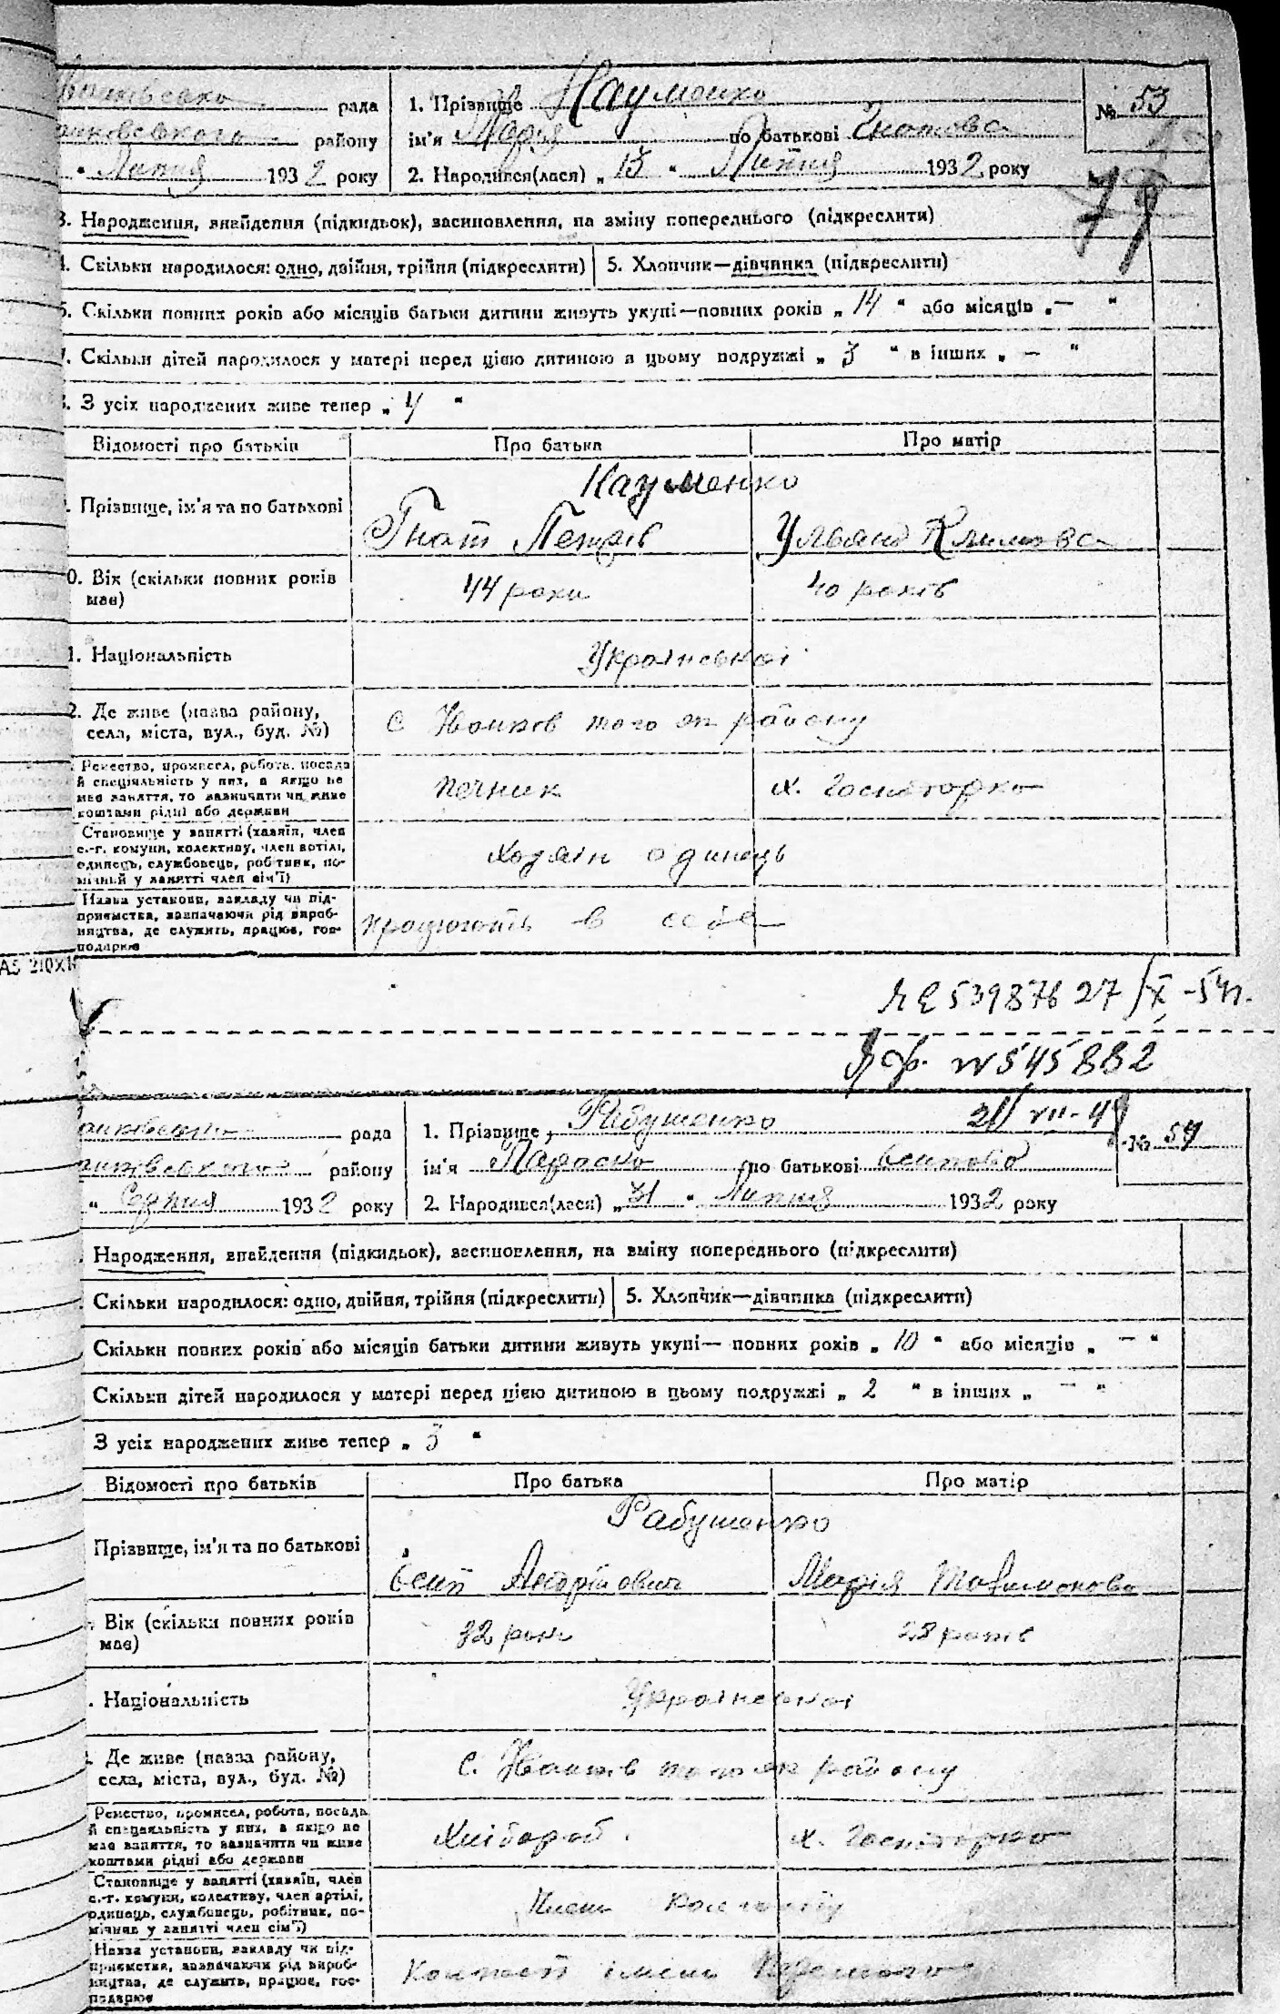 рада
району
" Липня 1932 року
1. Прізвище Науменко
ім'я Марія по батькові Гнатова
2. Народився(лася) „ 13 " Липня 1932 року
№ 53
79
3. Народження, знайдення (підкидьок), всиновлення, на зміну попереднього (підкреслити)
4. Скільки народилося: одно, двійня, трійня (підкреслити) 5. Хлопчик—дівчинка (підкреслити)
6. Скільки повних років або місяців батьки дитини живуть укупі—повних років „ 14 " або місяців „ — "
7. Скільки дітей народилося у матері перед цією дитиною в цьому подружжі „ 3 " в інших „ — "
8. З усіх народжених живе тепер „ 4 "
Відомості про батьків Про батька Про матір
Науменко
Прізвище, ім'я та по батькові
Гнат Петрів Уляна Климова
10. Вік (скільки повних років має) 44 роки 40 років
11. Національність Української
12. Де живе (назва району, села, міста, вул., буд. №) с того ж району
Ремество, промисел, робота, посада
й спеціяльність у них, а якщо не
має заняття, то зазначити чи живе
коштами рідні або держави
печник х. Господарка
Становище у занятті (хазяїн, член
с.-г. комуни, колективу, член артілі,
одинець, службовець, робітник, по-
мічний у занятті член сім'ї)
Хозяін одинець
Назва установи, закладу чи під-
приємства, зазначаючи рід вироб-
ництва, де служить, працює, гос-
подарює
працюють в себе
А5 210Х
539876 27/X -54
№ 545882
21/VII-4
рада
району
" Серпня 1932 року
1. Прізвище Рабушенко
ім'я Параска по батькові Осипова
2. Народився(лася) „ 31 " Липня 1932 року
№ 54
Народження, знайдення (підкидьок), всиновлення, на зміну попереднього (підкреслити)
Скільки народилося: одно, двійня, трійня (підкреслити) 5. Хлопчик—дівчинка (підкреслити)
Скільки повних років або місяців батьки дитини живуть укупі— повних років „ 10 " або місяців „ — "
Скільки дітей народилося у матері перед цією дитиною в цьому подружжі „ 2 " в інших „ — "
З усіх народжених живе тепер „ 3 "
Відомості про батьків Про батька Про матір
Рабушенко
Прізвище, ім'я та по батькові
Андрійович Марія
Вік (скільки повних років має) 32 роки 28 років
Національність Української
Де живе (назва району, села, міста, вул., буд. №) с. району
Ремество, промисел, робота, посада
й спеціяльність у них, а якщо не
має заняття, то зазначити чи живе
коштами рідні або держави
Хлібороб х. Господарка
Становище у занятті (хазяїн, член
с.-г. комуни, колективу, член артілі,
одинець, службовець, робітник, по-
мічник у занятті член сім'ї)
Член
Назва установи, закладу чи під-
приємства, зазначаючи рід вироб-
ництва, де служить, працює, гос-
подарює
імени